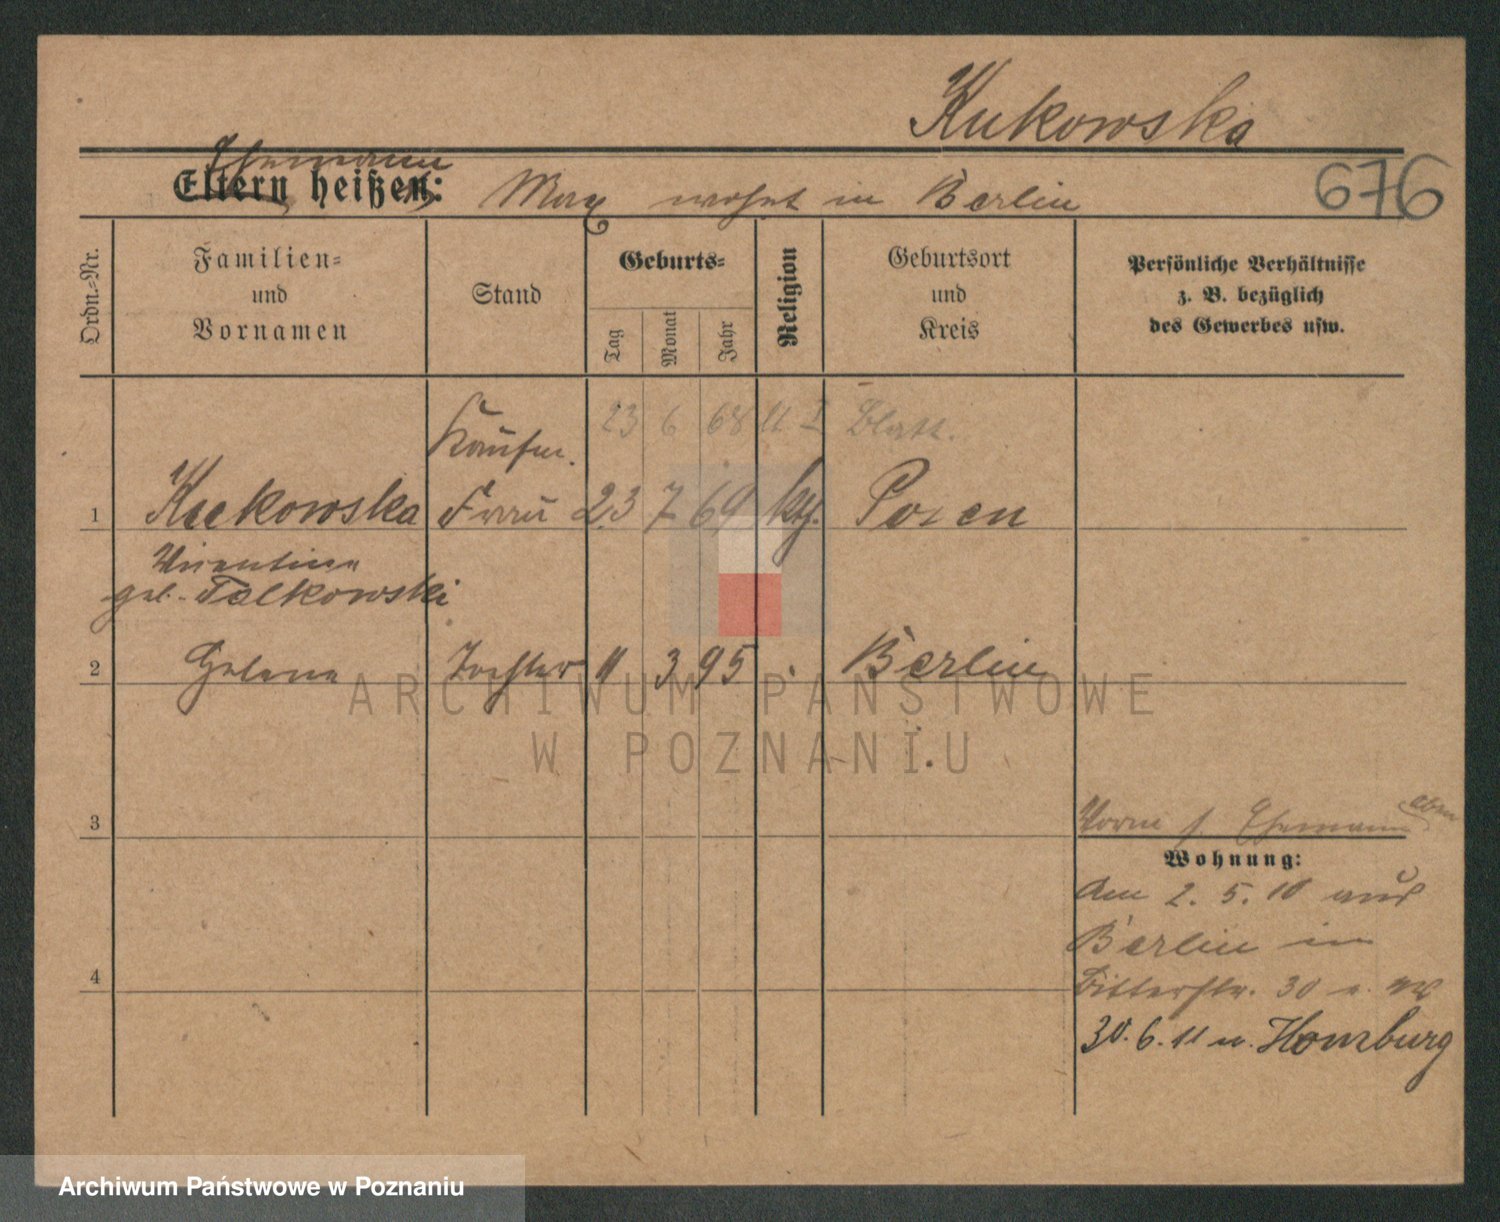 Kukowska
Ehemann
Eltern heißen: Max wohnt in Berlin
676
Ordn.-Nr.
Familien-
und
Vornamen
Stand
Geburts-
Tag
Monat
Jahr
Religion
Geburtsort
und
Kreis
Persönliche Verhältnisse
z. B. bezüglich
des Gewerbes usw.
23 6 68 II Blatt.
Kaufm.
1 Kukowska Frau 23 7 69 kth. Posen
geb. Falkowski
2 Helene Tochter 11 3 95 Berlin
3
Ehemann oben
Wohnung:
Am 2. 5. 10 aus
Berlin in
Ritterstr. 30
4
30. 6. 11 n. Homburg
ARCHIWUM PAŃSTWOWE
W POZNANIU
Archiwum Państwowe w Poznaniu